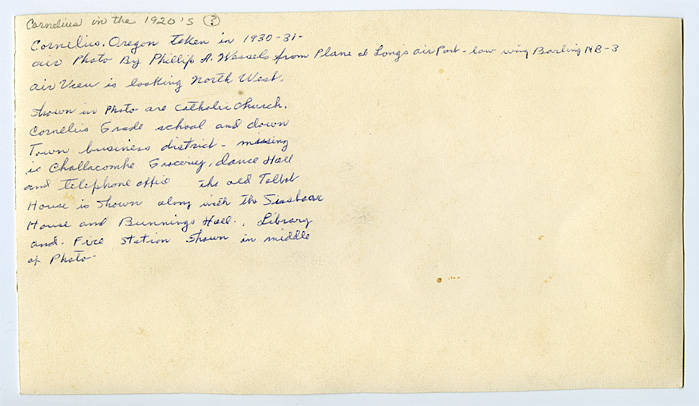 Cornelius in the 1920's (?)
Cornelius, Oregon taken in 1930-31-
air Photo By Phillip H. Wessels from Plane at Longs air Port - low wing Barling NB-3
air View is looking North West.
Shown in Photo are Catholic Church.
Cornelius Grade school and down
Town business district - missing
is Challacombe Grocery, dance Hall
and telephone office the old Talbot
House is shown along with the
House and Bunnings Hall., Library
and. Fire Station shown in middle
of Photo-